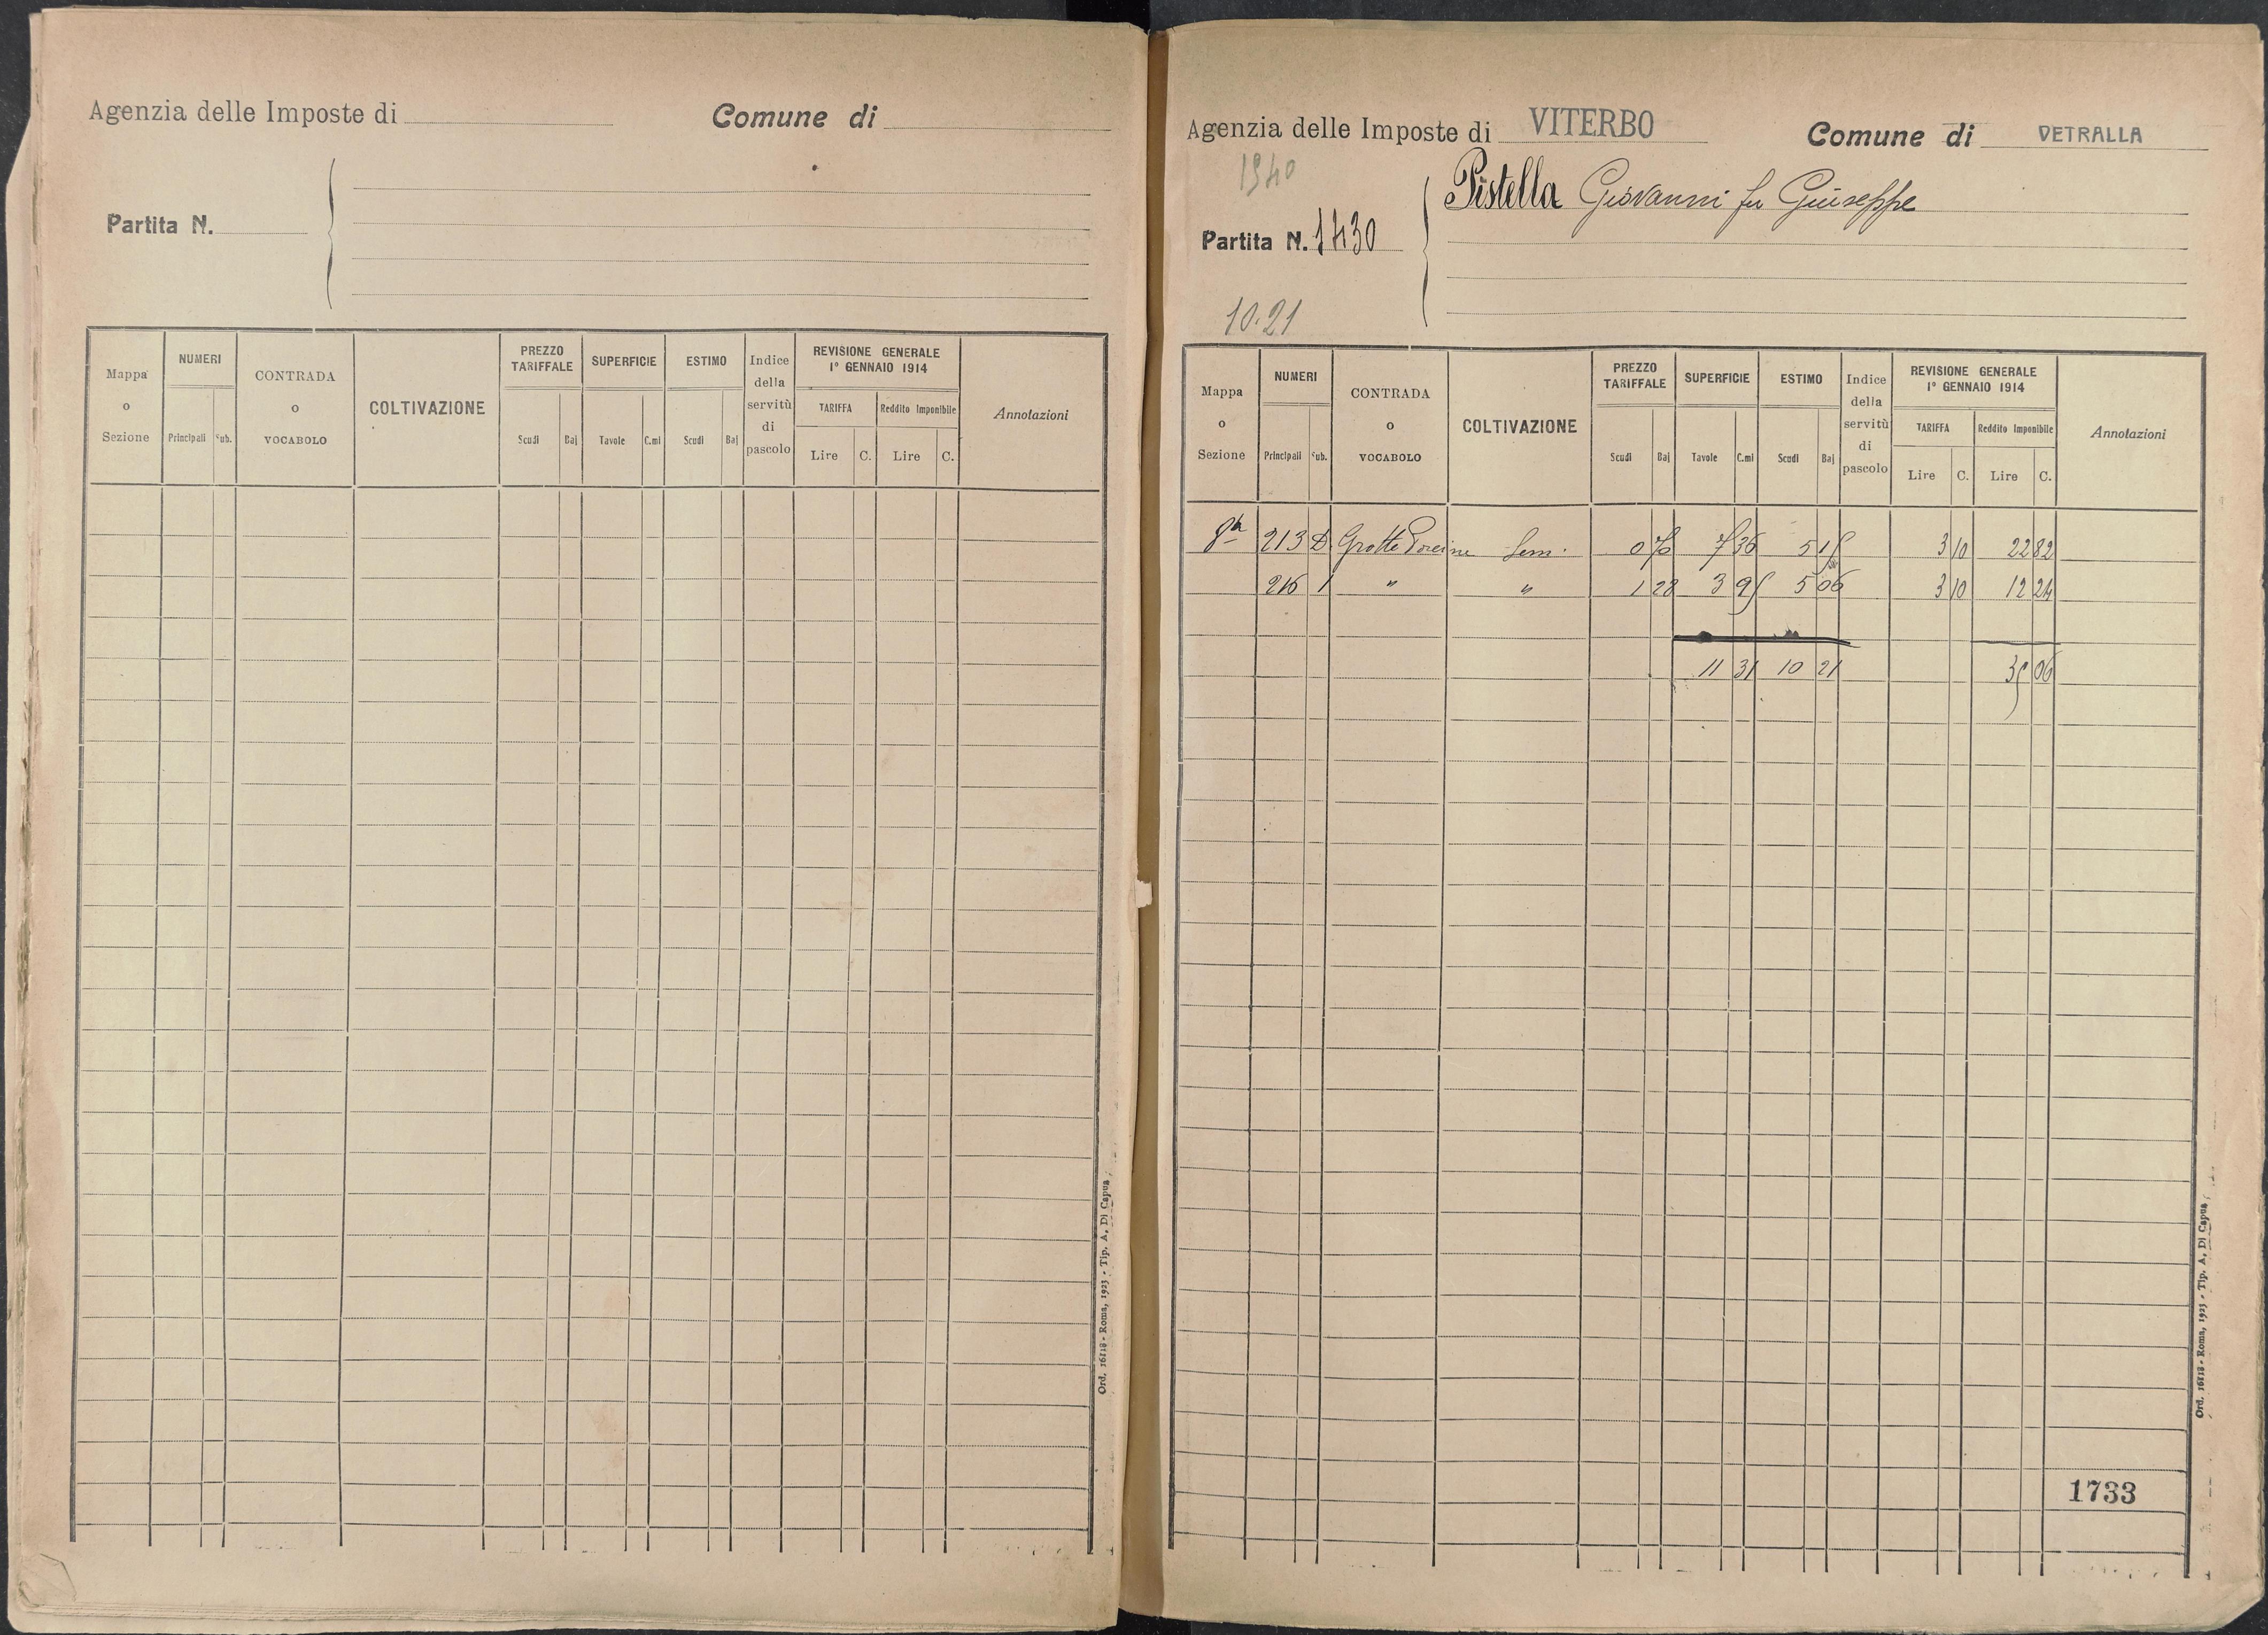 Agenzia delle Imposte di
Comune di
Partita N.
Mappa o Sezione
NUMERI
Principali
Sub.
CONTRADA o VOCABOLO
COLTIVAZIONE
PREZZO TARIFFALE
Scudi
Baj
SUPERFICIE
Tavole
C.mi
ESTIMO
Scudi
Baj
Indice della servitù di pascolo
REVISIONE GENERALE
1° GENNAIO 1914
TARIFFA
Reddito Imponibile
Lire
C.
Lire
C.
Annotazioni
Ord. 16118 - Roma, 1923 - Tip. A. Di Capua
Agenzia delle Imposte di VITERBO
Comune di VETRALLA
1940
Pistella Giovanni fu Giuseppe
Partita N. 1430
10.21
Mappa o Sezione
NUMERI
Principali
Sub.
CONTRADA o VOCABOLO
COLTIVAZIONE
PREZZO TARIFFALE
Scudi
Baj
SUPERFICIE
Tavole
C.mi
ESTIMO
Scudi
Baj
Indice della servitù di pascolo
REVISIONE GENERALE
1° GENNAIO 1914
TARIFFA
Reddito Imponibile
Lire
C.
Lire
C.
Annotazioni
213 Grotte Porcine Sem. 0 70 7 36 5 15 3 10 22 82
216 1 " " 1 28 3 95 5 06 3 10 12 24
11 31 10 21 35 06
1733
Ord. 16118 - Roma, 1923 - Tip. A. Di Capua